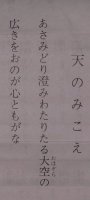 天のみこゑ
あさみどり澄みわたりたる大空の
おほぞら
広きをおのが心ともがな